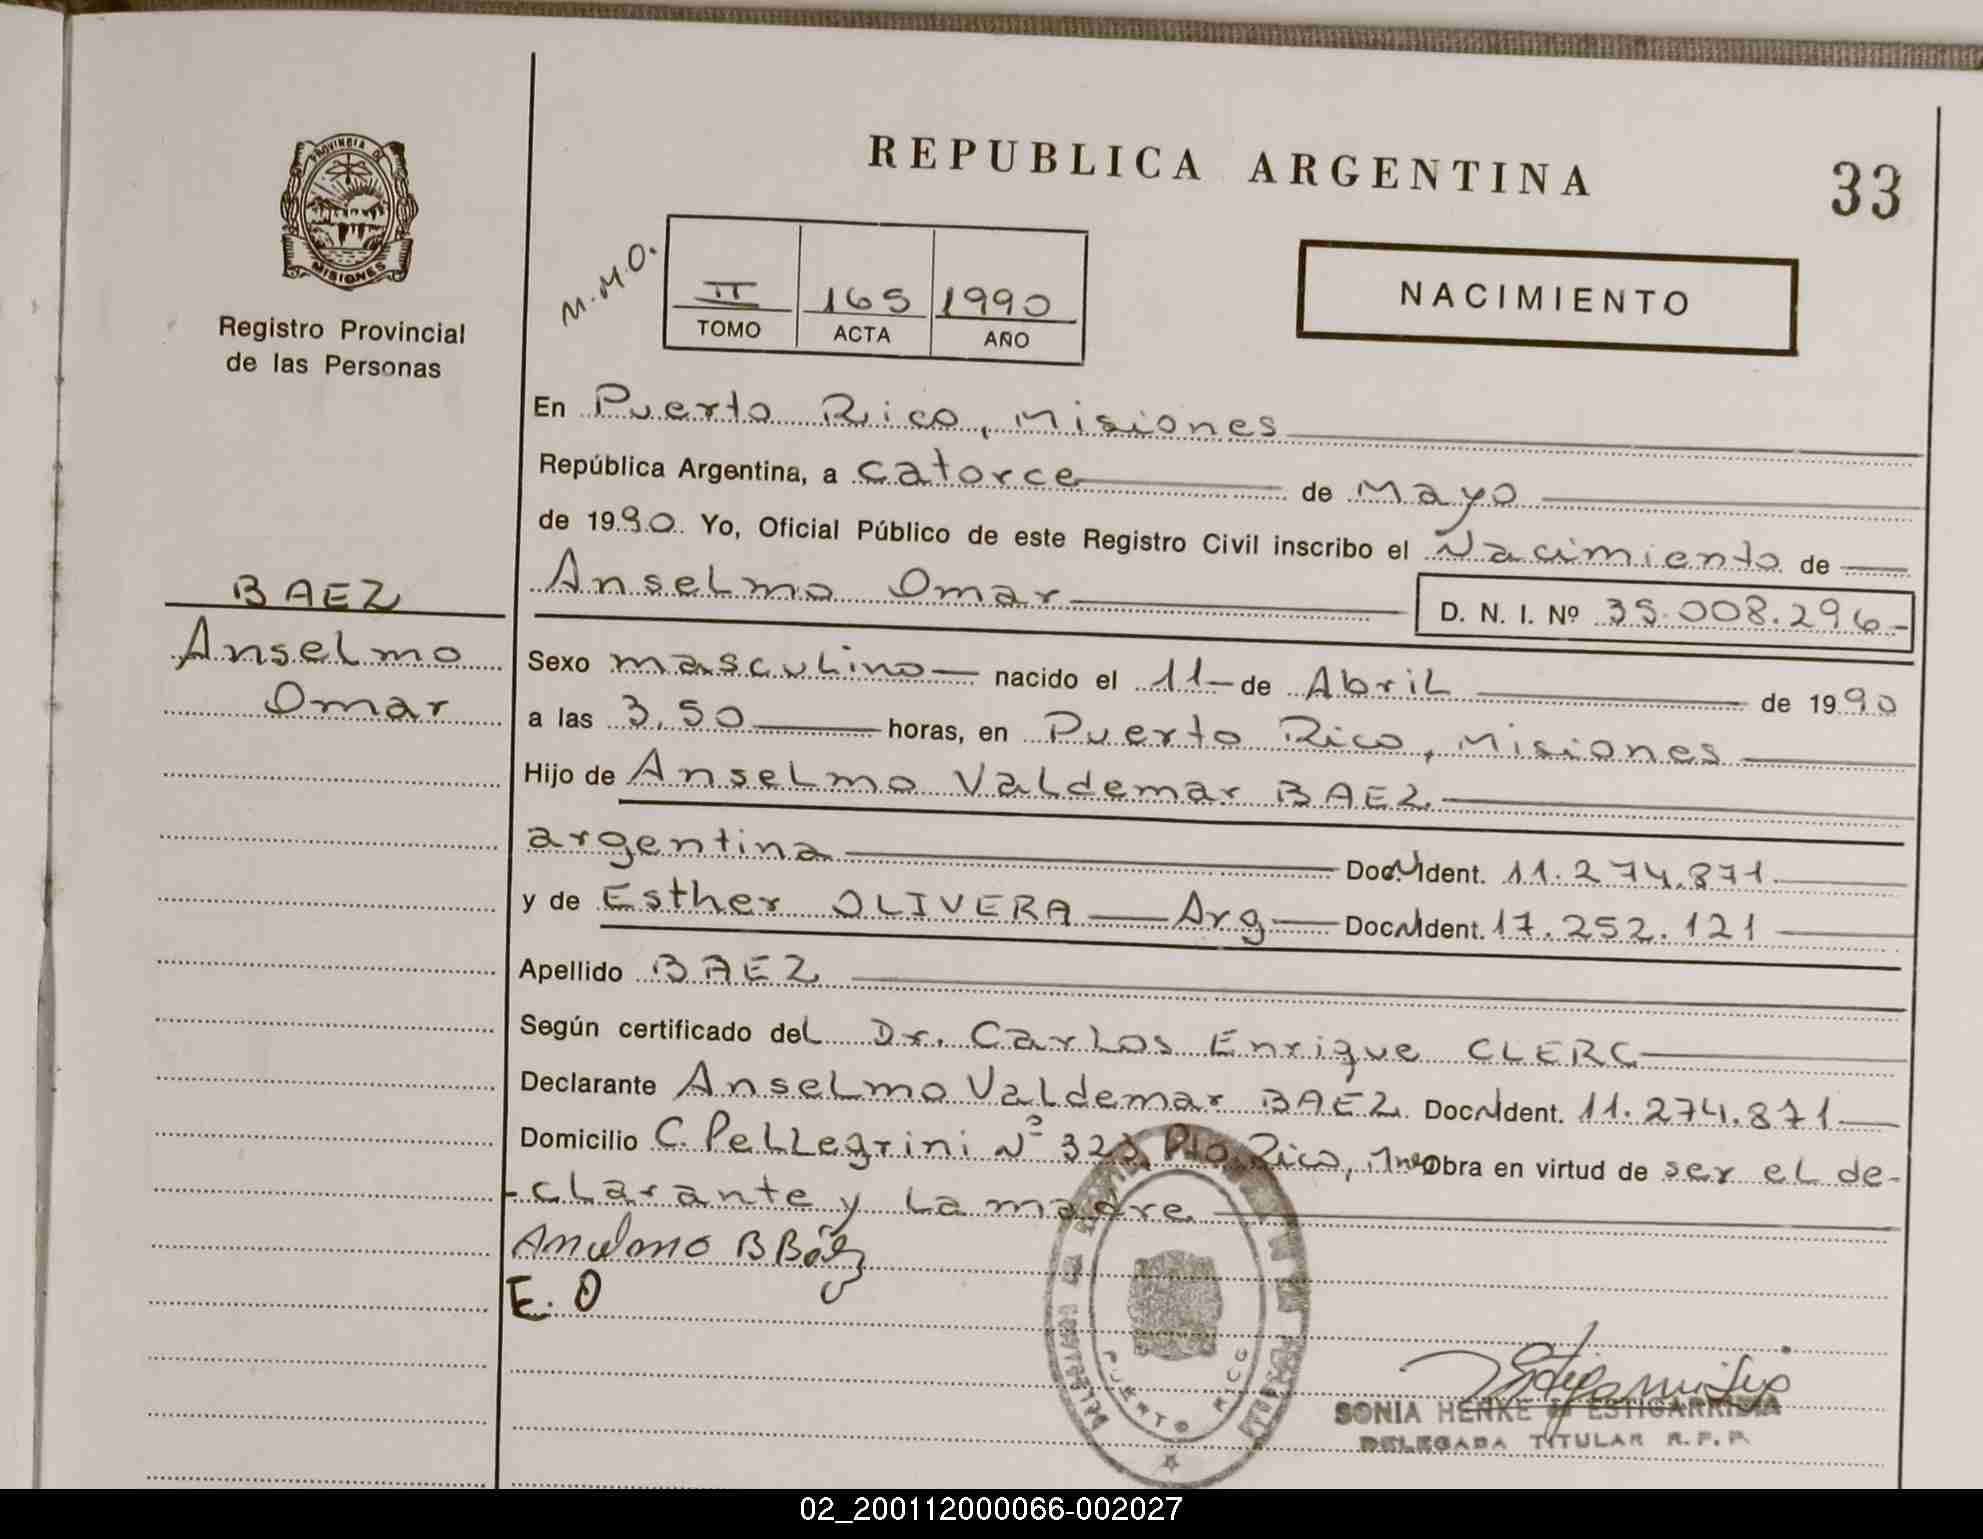 REPUBLICA ARGENTINA
33
PROVINCIA DE
MISIONES
Registro Provincial
de las Personas
M.M.O.
II 165 1990
TOMO ACTA AÑO
NACIMIENTO
En Puerto Rico, Misiones
República Argentina, a catorce de Mayo
de 1990. Yo, Oficial Público de este Registro Civil inscribo el Nacimiento de
Anselmo Omar
D. N. I. Nº 35.008.296-
BAEZ
Anselmo
Omar
Sexo masculino nacido el 11 de Abril de 1990
a las 3,50 horas, en Puerto Rico, Misiones
Hijo de Anselmo Valdemar BAEZ
argentina Doc. Ident. 11.274.871
y de Esther OLIVERA Arg Doc Ident. 17.252.121
Apellido BAEZ
Según certificado del Dr. Carlos Enrique CLERC
Declarante Anselmo Valdemar BAEZ. Doc Ident. 11.274.871
Domicilio C. Pellegrini Nº Pto. Rico, Mnes Obra en virtud de ser el de-
-clarante y la madre
E. O
PUERTO RICO
SONIA HENKE de ESTIGARRIBIA
DELEGADA TITULAR R.P.P.
02_200112000066-002027